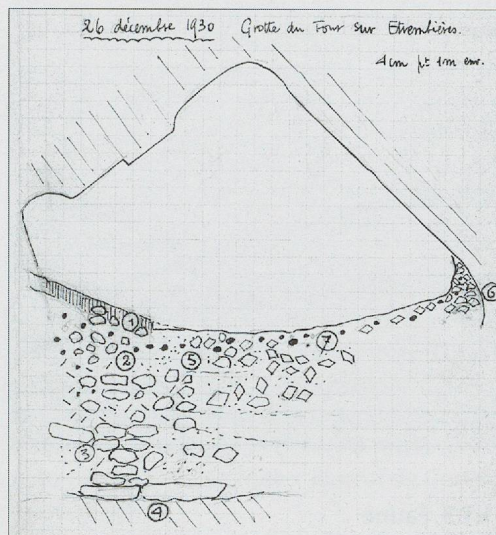 26 décembre 1930 Grotte du Four sur Etrembières.
4 cm pt 1m env.
1
2
3
4
5
6
7